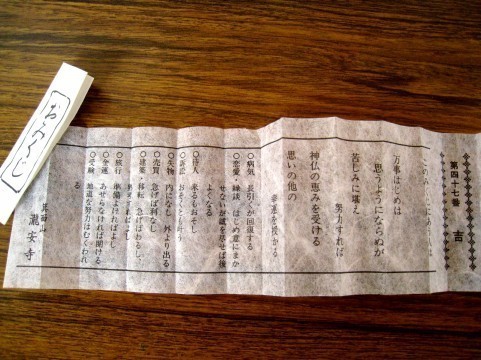 おみくじ
第四十七番
吉
万事はじめは
思うようにならぬが
苦しみに堪え
努力すれば
神仏の恵みを受ける
思いの他の
幸運を授かる
○病気 長引くが回復する
○恋愛・縁談 はじめ意にまか
せないが誠を尽せば後
よくなる
○待人 来るもおそし
○訴訟 おそくとも叶う
○失物 内になし 外より出る
○売買 急げば利なし
○建築・移転 急げばわるし
○旅行 準備よければよし
○金運 あせらなければ開ける
○受験 地道な努力はむくわれ
る
箕面山
瀧安寺